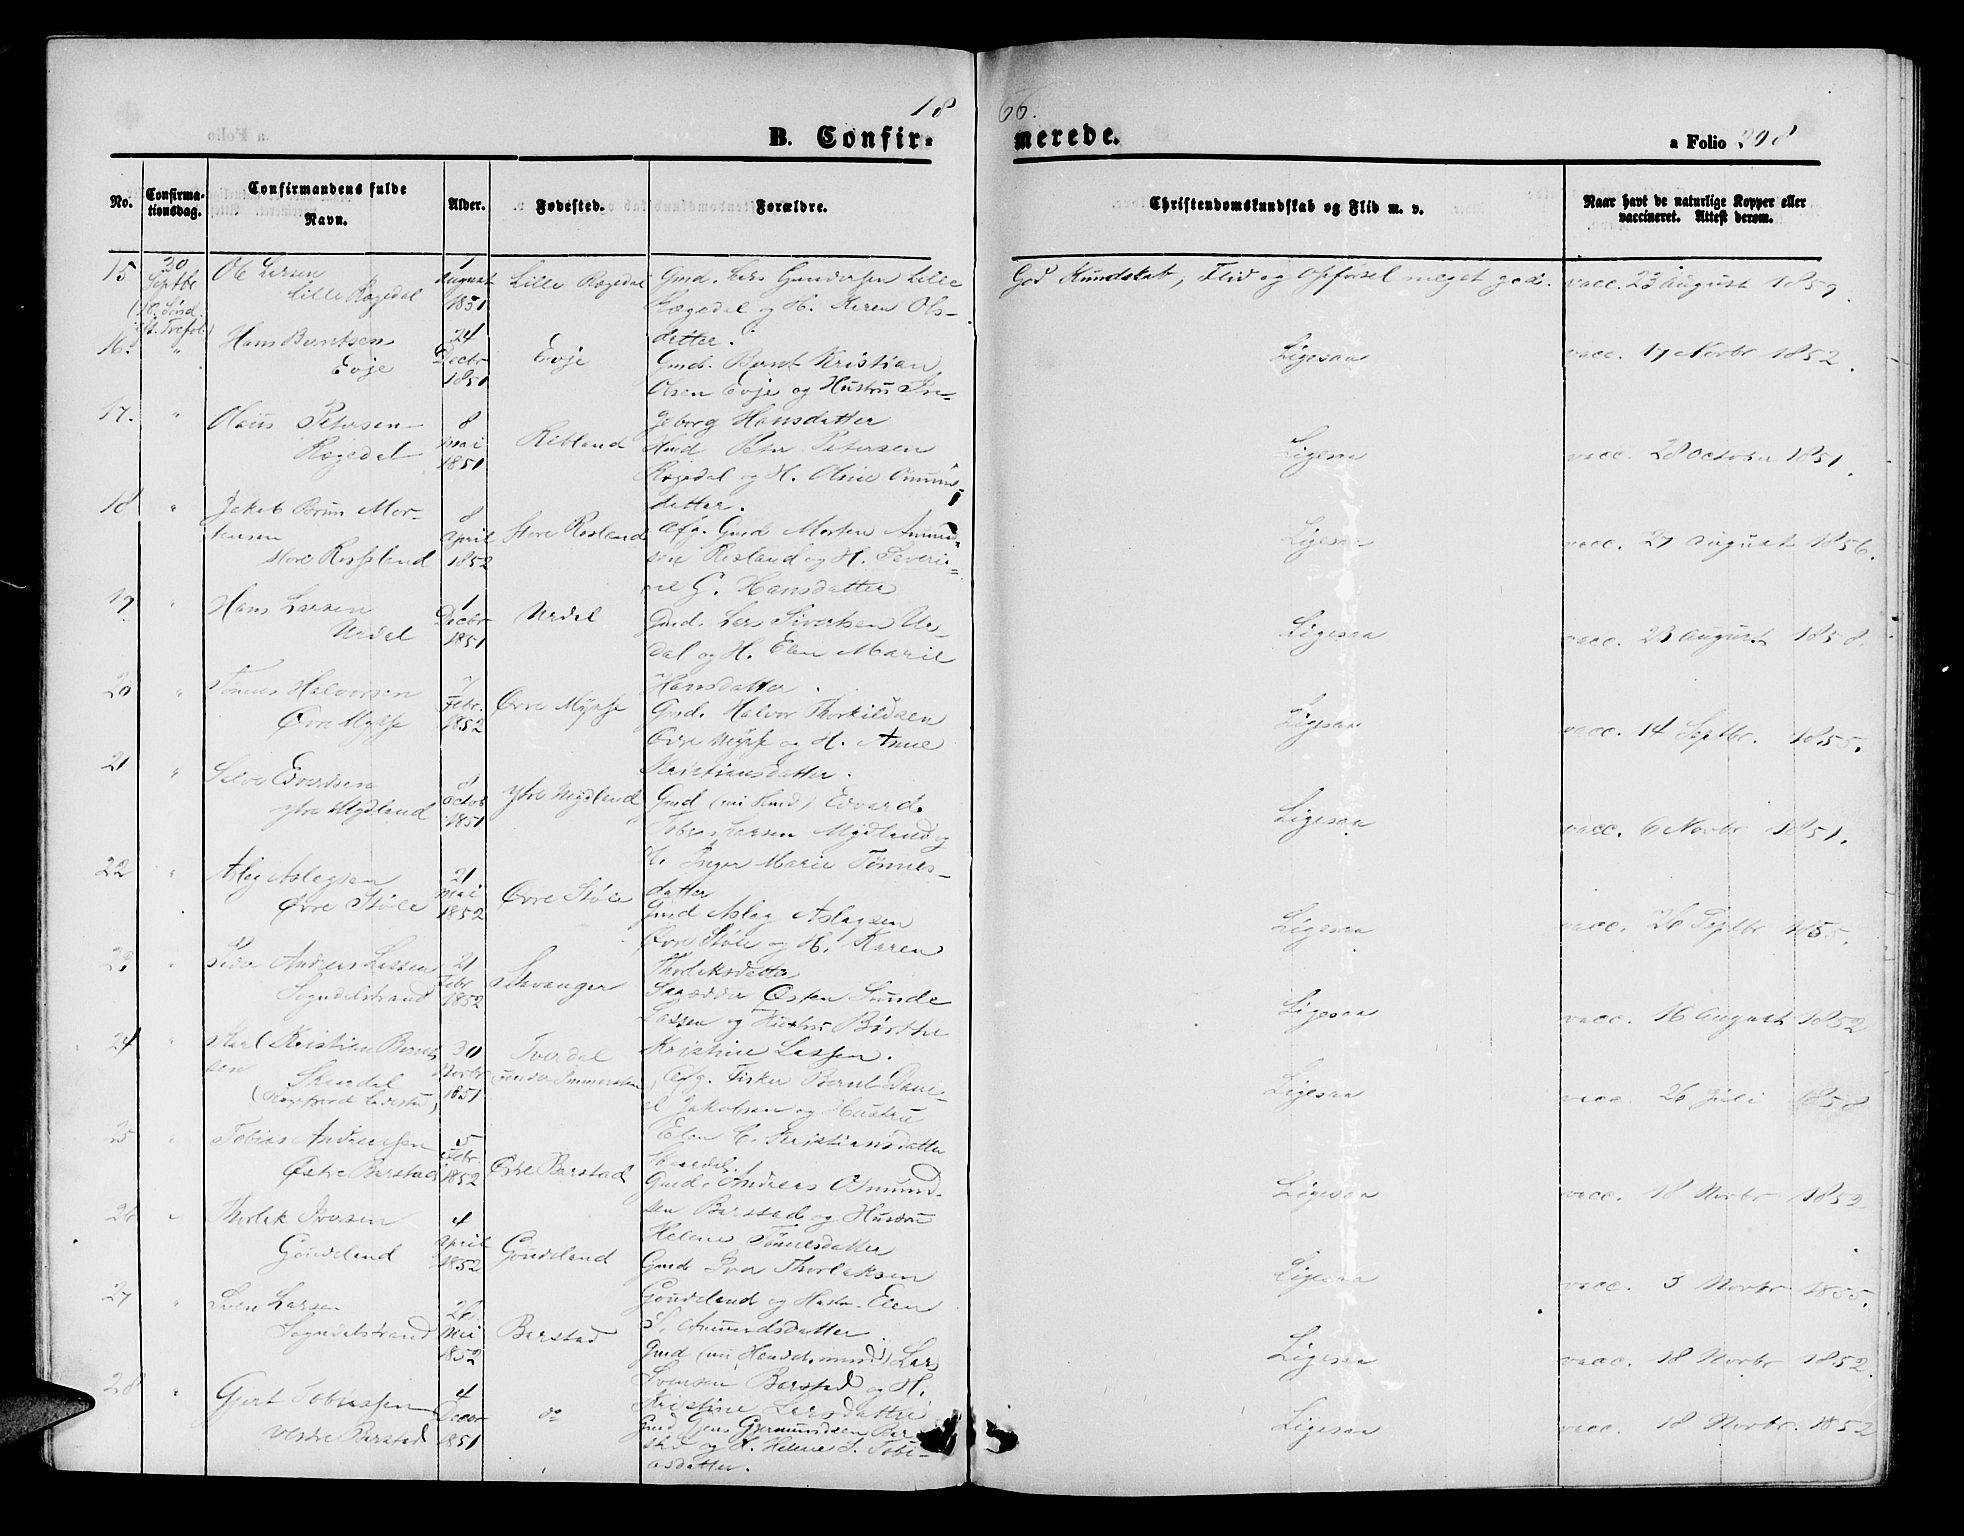 18
66.
B. Confir-
merede.
a Folio 298
No.
Confirma-
tionsdag.
Confirmandens fulde
Navn.
Alder.
Fødested.
Forældre.
Christendomskundskab og Flid m. v.
Naar havt de naturlige Kopper eller
vaccineret. Attest derom.
15
30 Septbr
1 August 1851
Lille Rægedal
Gmd. Lars Gundersen Lille
Rægedal og H. Karen Ols-
datter.
Ole Larsen
Lille Rægedal
God Kundskab, Flid og Opførsel meget god.
vacc. 23 August 1859.
16.
"
Hans Berntsen
Evje
24 Decbr 1851
Evje
Gmd. Bernt Kristian
Olsen Evje og Hustru In-
geborg Hansdatter
Ligesaa
vacc. 17 Novbr 1852.
17.
"
Olaus Petersen
Rægedal
8 Mai 1851
Ribland
Hmd Peter Petersen
Rægedal og H. Oline Amunds-
datter.
Ligesaa
vacc. 28 October 1851.
18
"
Jakob Brun Mor-
tensen
store Rosseland
8 April 1852
Store Rosland
Afg. Gmd Morten Amund-
sen Rosland og H. Severi-
ne G. Hansdatter
Ligesaa
vacc. 27 August 1856.
19
"
Hans Larsen
Urdal
1 Decbr 1851
Urdal
Gmd. Lars Sivertsen Ur-
dal og H. Elen Marie
Hansdatter.
Ligesaa
vacc. 23 August 1858.
20
"
Tønnes Halvorsen
Øvre Mysse
7 Febr. 1852
Øvre Mysse
Gmd. Halvor Thorkildsen
Øvre Mysse og H. Anne
Kristiansdatter.
Ligesaa
vacc. 14 Septbr. 1855.
21
"
Edvardsen
ytre Mydland
8 Octob 1851
ytre Mydland
Gmd (nu Hmd) Edvard
Tobias Larsen Mydland og
H. Inger Marie Tønnes-
datter
Ligesaa
vacc. 6 Novbr 1851.
22
"
Aslag Aslagsen
Øvre Støle
21 Mai 1852
Øvre Støle
Gmd Aslag Aslagsen
Øvre Støle og H. Karen
Thorlaksdatter
Ligesaa
vacc. 26 Septbr 1855.
23
"
Peder Andreas Lassen
Sogndalstrand
21 Febr 1852
Stavanger
Skrædder Østen Sunde
Lassen og Hustru Børthe
Kristine Lassen.
Ligesaa
vacc. 16 August 1852
24
"
Karl Kristian Bernt-
sen
Skaardal
30 Novbr 1851
Tverdal
Afg. Fisker Bernt Dani-
el Jakobsen og Hustru
Elen C. Kristiansdatter
Skaardal.
Ligesaa
vacc. 26 Juli 1858
25
"
Tobias Andreassen
Østre Barstad
5 Febr. 1852
Østre Barstad
Gmd. Andreas Osmund-
sen Barstad og Hustru
Helene Tønnesdatter
Ligesaa
vacc. 18 Novbr 1852
26
"
Thorlak Iversen
Goudeland
4 April 1852
Goudeland
Gmd Iver Thorlaksen
Goudeland og Hustru Elen
S. Amundsdatter.
Ligesaa
vacc. 3 Novbr 1855.
27
"
Sven Larsen
Sogndalstrand
26 Mai 1852
Barstad
Gmd (nu Handelsmand) Lars
Svensen Barstad og H.
Kristine Larsdatter
Ligesaa
vacc. 18 Novbr 1852
28
"
Gjert Tobiassen
vestre Barstad
4 Decbr 1851
do
Gmd Jens Gjermundsen Bar-
stad og H. Helene S. Tobi-
asdatter.
Ligesaa
vacc. 18 Novbr. 1852